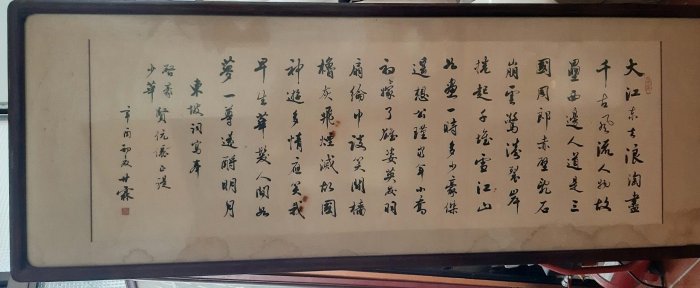 大江東去浪淘盡
千古風流人物故
壘西邊人道是三
國周郎赤壁亂石
崩雲驚濤裂岸
捲起千堆雪江山
如畫一時多少豪傑
遥想公瑾當年小喬
初嫁了雄姿英發羽
扇綸巾談笑間檣
櫓灰飛煙滅故國
神遊多情應笑我
早生華髮人間如
夢一尊還酹明月
東坡詞寫奉
少華 賢伉儷正
辛酉初夏 霖